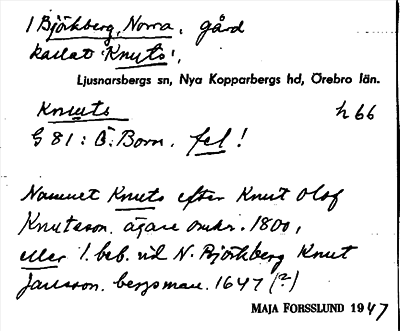 1 Björkberg, Norra, gård
kallat 'Knuts',
Ljusnarsbergs sn, Nya Kopparbergs hd, Örebro län.
Knuts h 66
G 81: Ö. Born. fel!
Namnet Knuts efter Knut Olof
Knutsson, ägare omkr. 1800,
eller 1. beb. vid N. Björkberg Knut
Jansson, bergsman. 1647 (?)
MAJA FORSSLUND 1947